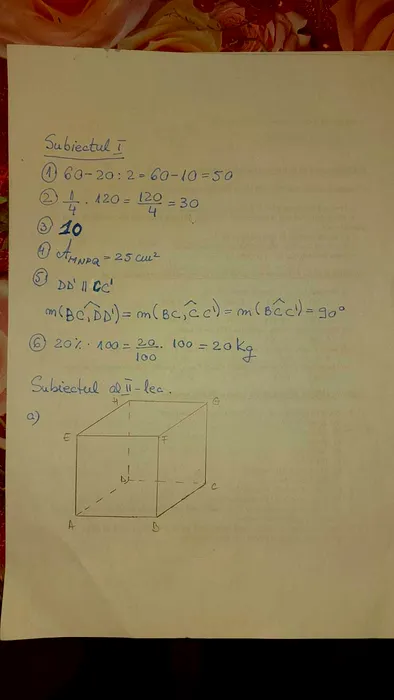 Subiectul I
① 60-20:2=60-10=50
② 1/4 · 120 = 120/4 = 30
③ 10
④ A_MNPQ = 25 cm²
⑤ DD' || CC'
m(BC, DD') = m(BC, CC') = m(BCC') = 90°
⑥ 20% · 100 = 20/100 · 100 = 20 kg
Subiectul al II-lea.
a)
H G
E F
D C
A B